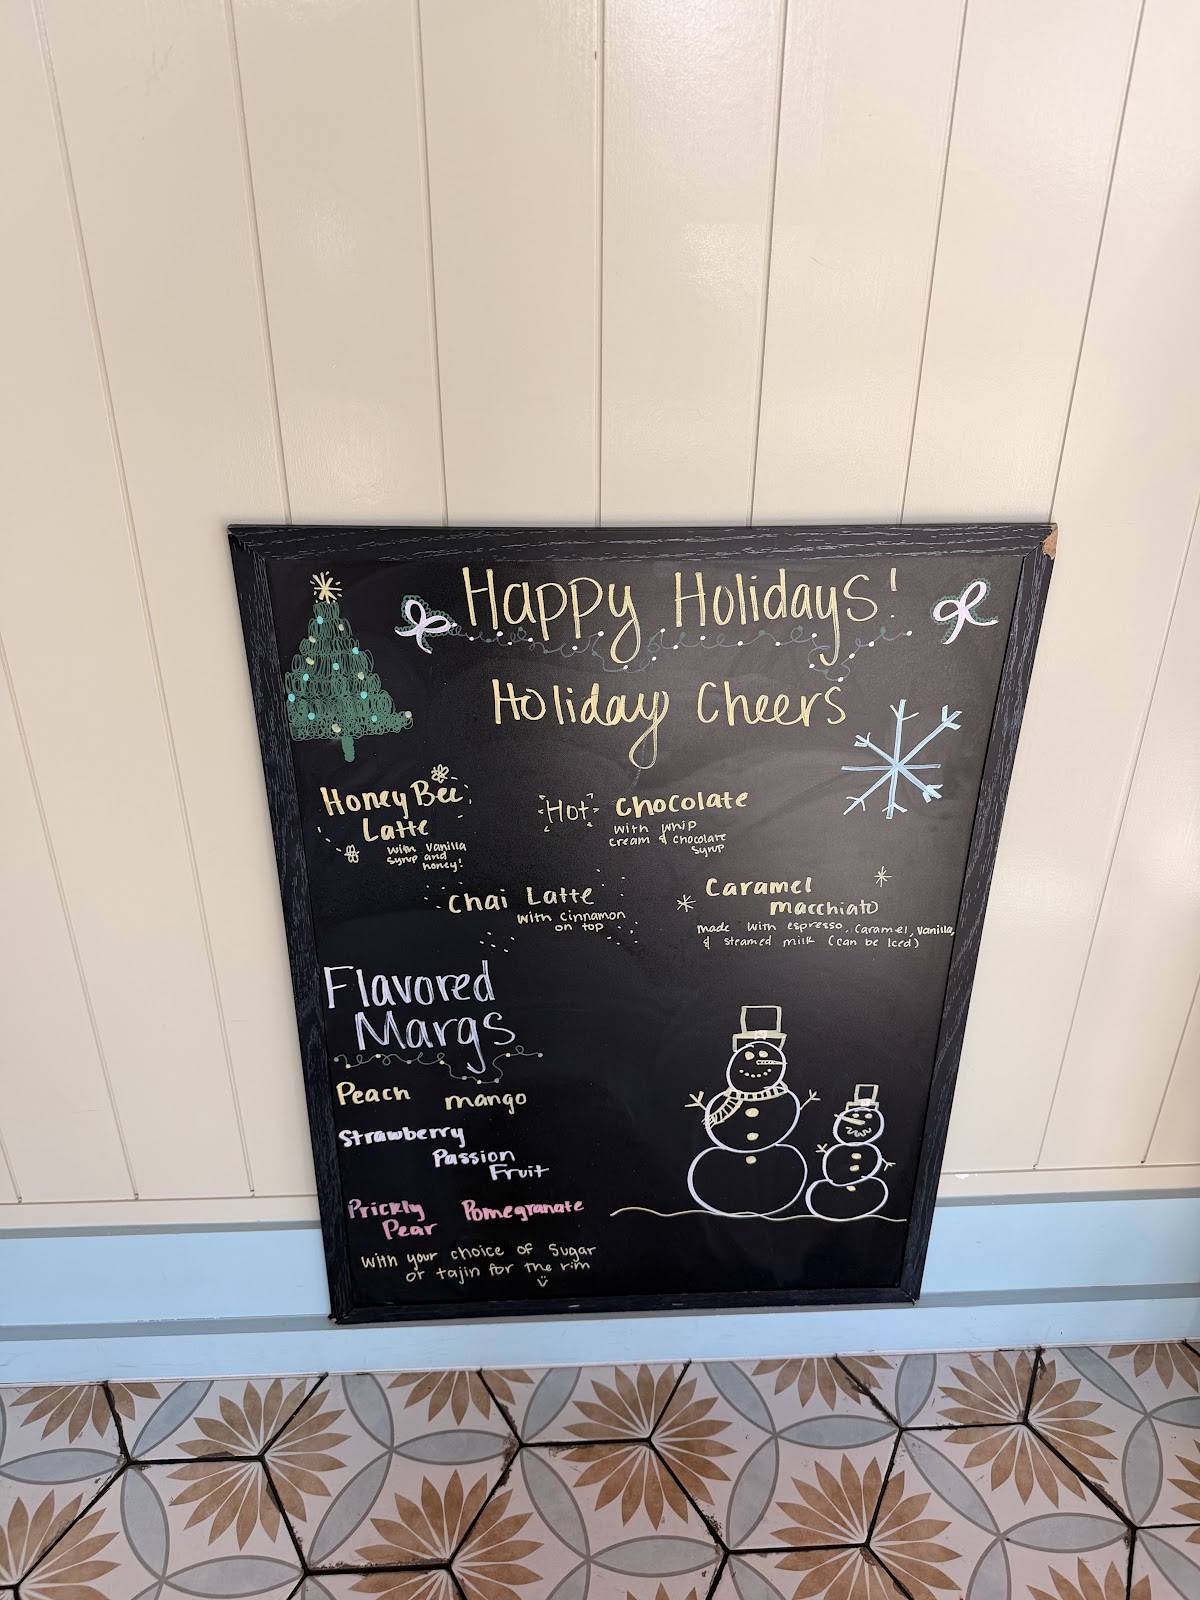 Happy Holidays!
Holiday Cheers
Honey Bee
Latte
with vanilla
syrup and
honey!
Hot chocolate
with whip
cream & chocolate
syrup
Chai Latte
with cinnamon
on top
Caramel
macchiato
made with espresso, caramel, vanilla,
& steamed milk (can be Iced)
Flavored
Margs
Peach mango
Strawberry
Passion
Fruit
Prickly Pomegranate
Pear
with your choice of sugar
or tajin for the rim